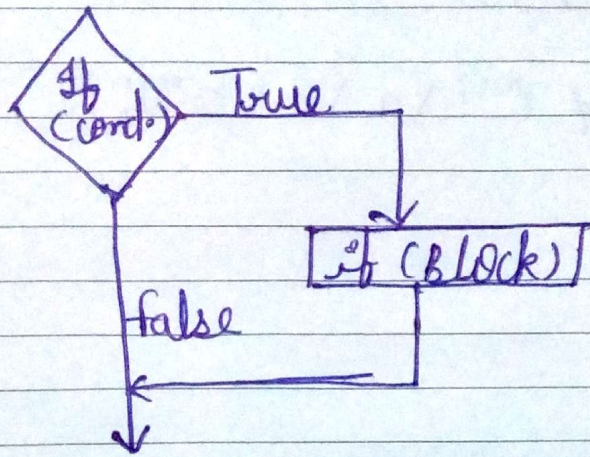 If
(cond.)
True
if (BLOCK)
false